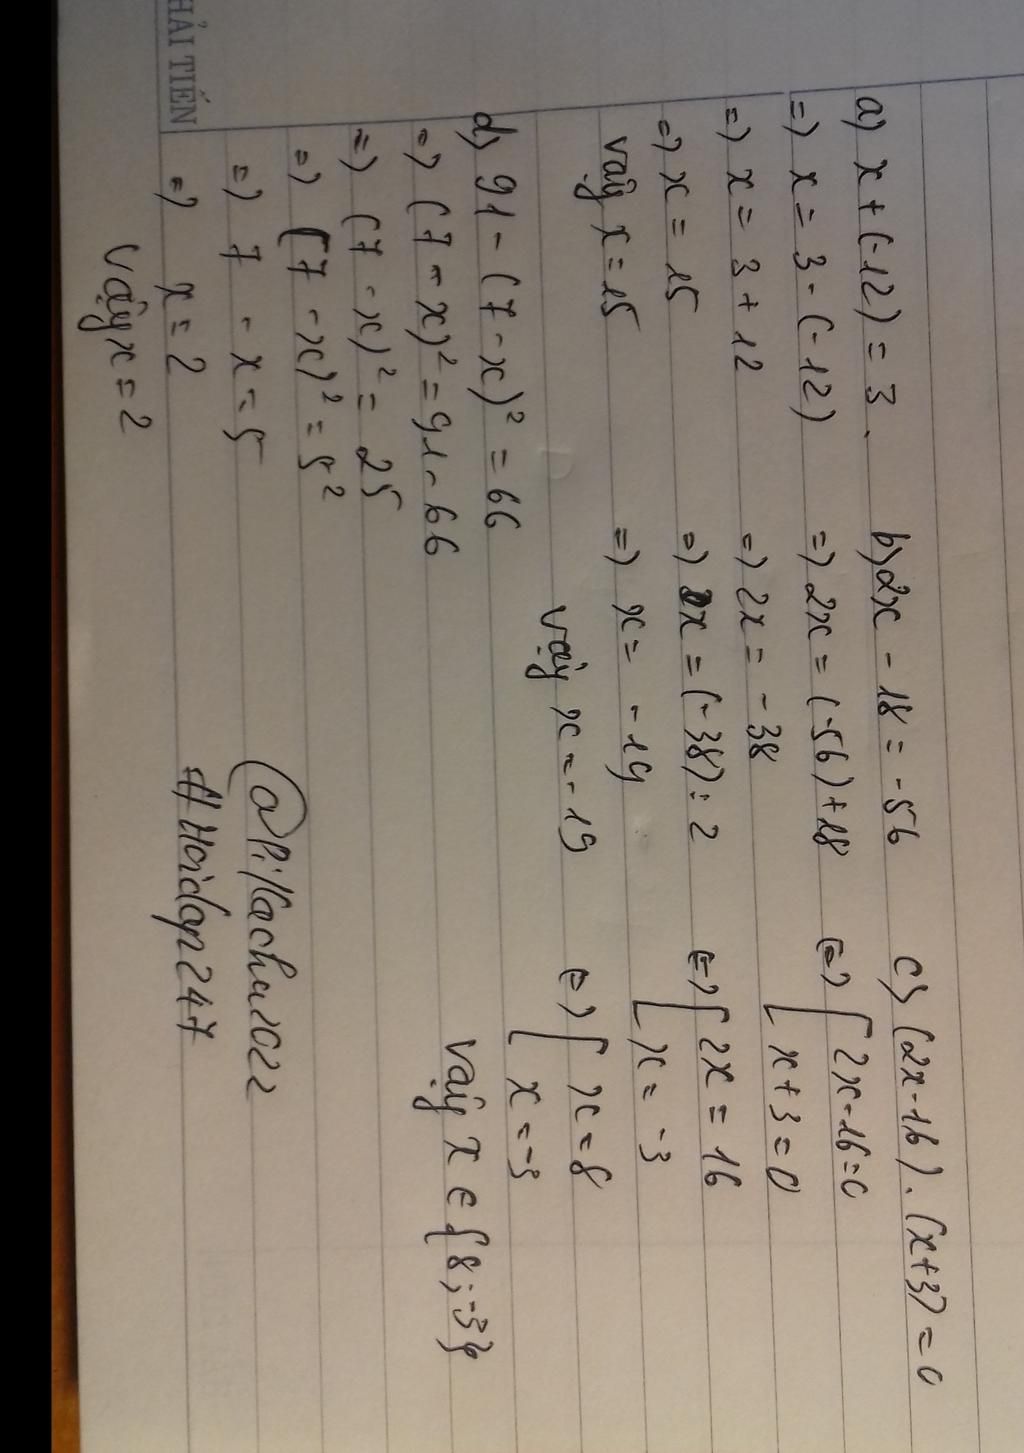 a) x + (-12) = 3
=) x = 3 - (-12)
=) x = 3 + 12
=) x = 15
Vậy x = 15
b) 2x - 18 = -56
=) 2x = (-56) + 18
=) 2x = -38
=) x = (-38) : 2
=) x = -19
Vậy x = -19
c) (2x-16) . (x+3) = 0
(=) [ 2x-16=0
x+3=0
(=) [ 2x = 16
x = -3
(=) [ x = 8
x = -3
Vậy x ∈ {8; -3}
d) 91 - (7-x)² = 66
=) (7-x)² = 91-66
=) (7-x)² = 25
=) (7-x)² = 5²
=) 7 - x = 5
=) x = 2
Vậy x = 2
#Hoidap247
HẢI TIẾN